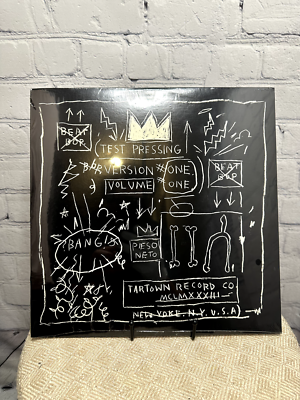 BEAT
BOP
TEST PRESSING
VERSION
ONE
VOLUME
ONE
BEAT
BOP
BANG!
PIESO
NETO
TARTOWN RECORD CO.
MCLMXXXIII
NEW YORK. N.Y. U.S.A